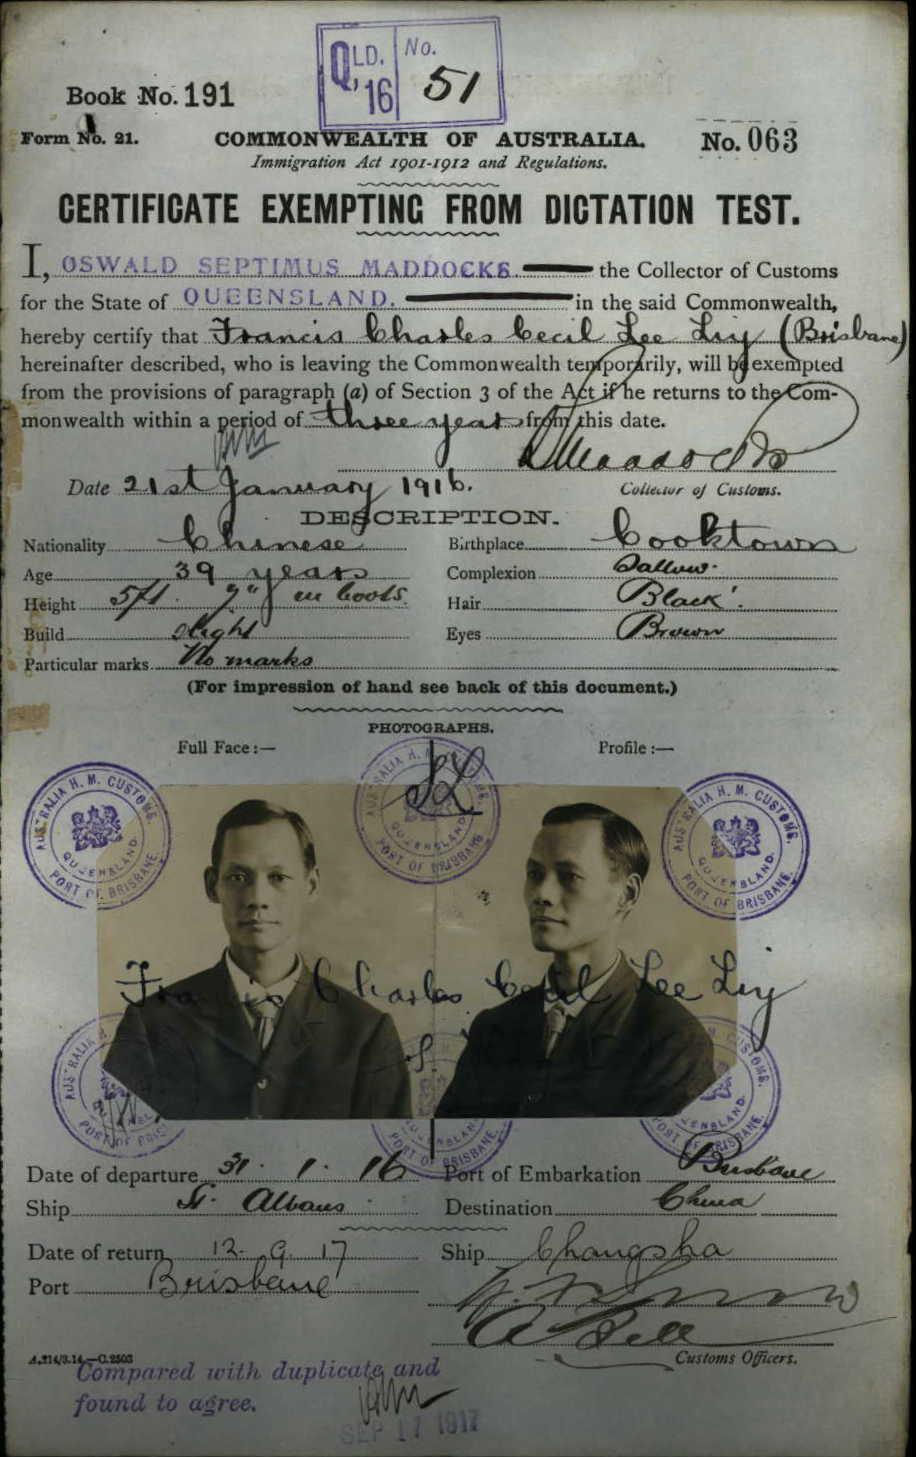 QLD. '16 No. 51
Book No. 191
Form No. 21. COMMONWEALTH OF AUSTRALIA. No. 063
Immigration Act 1901-1912 and Regulations.
CERTIFICATE EXEMPTING FROM DICTATION TEST.
I, OSWALD SEPTIMUS MADDOCKS the Collector of Customs
for the State of QUEENSLAND. in the said Commonwealth,
hereby certify that Francis Charles Cecil Lee Liy (Brisbane)
hereinafter described, who is leaving the Commonwealth temporarily, will be exempted
from the provisions of paragraph (a) of Section 3 of the Act if he returns to the Com-
monwealth within a period of three years from this date.
Maddocks
Date 21st January 1916. Collector of Customs.
DESCRIPTION.
Nationality Chinese Birthplace Cooktown
Age 39 years Complexion Sallow.
Height 5ft. 7" in boots. Hair Black.
Build Slight Eyes Brown
Particular marks No marks
(For impression of hand see back of this document.)
PHOTOGRAPHS.
Full Face :— Profile :—
AUSTRALIA H. M. CUSTOMS. QUEENSLAND. PORT OF BRISBANE.
AUSTRALIA H. M. QUEENSLAND. PORT OF BRISBANE
AUSTRALIA H. M. CUSTOMS. QUEENSLAND. PORT OF BRISBANE.
Francis Charles Cecil Lee Liy
Date of departure 31. 1. 16 Port of Embarkation Brisbane
Ship St. Albans Destination China
Date of return 12. 9. 17 Ship Changsha
Port Brisbane
A Bell
A.214/3.14.—C.2503 Customs Officers.
Compared with duplicate and
found to agree.
SEP 17 1917